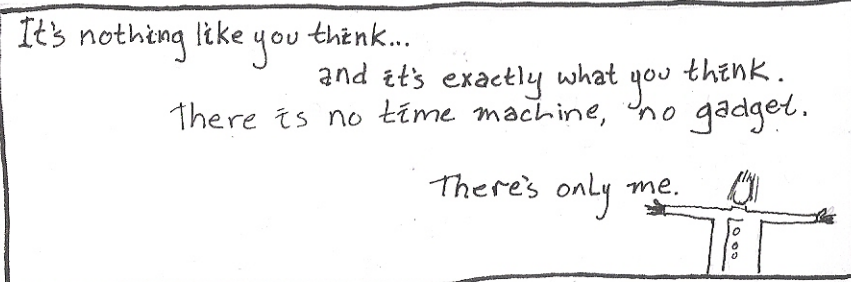 It's nothing like you think...
and it's exactly what you think.
There is no time machine, no gadget.
There's only me.